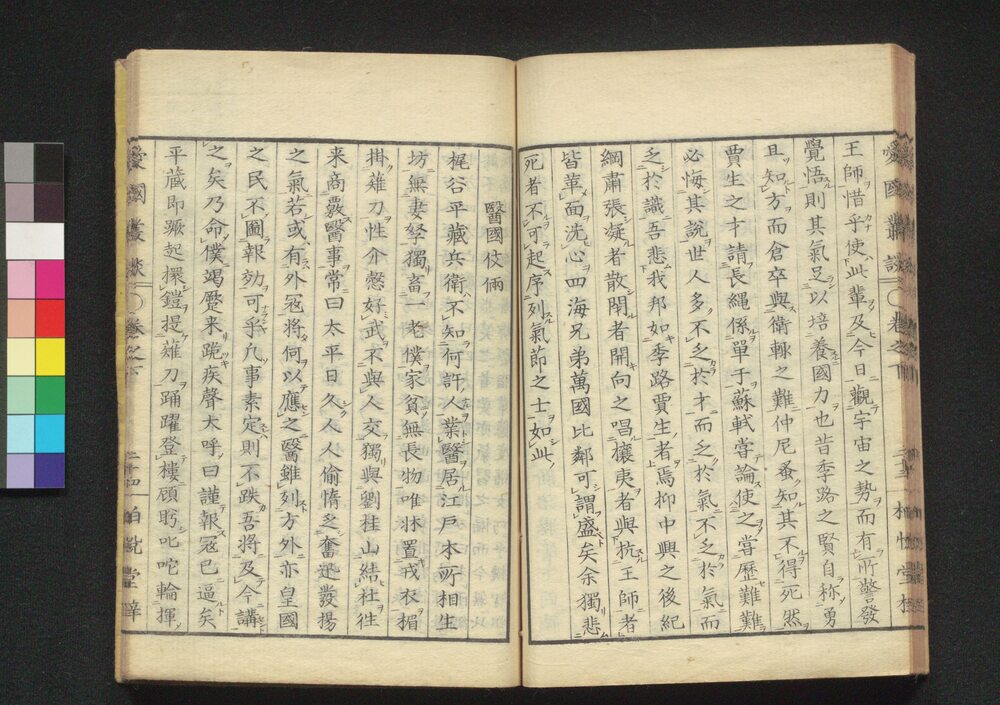 王師惜乎使此輩及今日觀宇宙之勢而有所警發
覺悟則其氣足以培養國力也昔季路之賢自称勇
且知方而倉卒與衛輒之難仲尼蚤知其不得死然
賈生之才請長繩係單于蘇軾嘗論使之嘗歷難難
必悔其說世人多不乏於才而乏於氣不乏於氣而
乏於識吾悲我邦如季路賈生者焉抑中興之後紀
綱肅張凝者散閉者開向之唱攘夷者與抗王師者
皆革面洗心四海兄弟萬國比鄰可謂盛矣余獨悲
死者不可起序列氣節之士如此
醫國伎倆
梶谷平藏兵衛不知何許人業醫居江戸本所相生
坊無妻孥獨畜一老僕家貧無長物唯牀置戎衣楣
掛薙刀性介慤好武不與人交獨與劉桂山結社徃
来商覈醫事常曰太平日久人人偷惰乏奮迅發揚
之氣若或有外冦將何以應之醫雖列方外亦皇國
之民不圖報効可乎凢事素定則不跌吾將及今講
之矣乃命僕竭蹷来跪疾聲大呼曰謹報冦已逼矣
平蔵即蹶起擐鎧提薙刀踊躍登樓顧眄叱咜輪揮
愛國叢談 卷之下 二十四